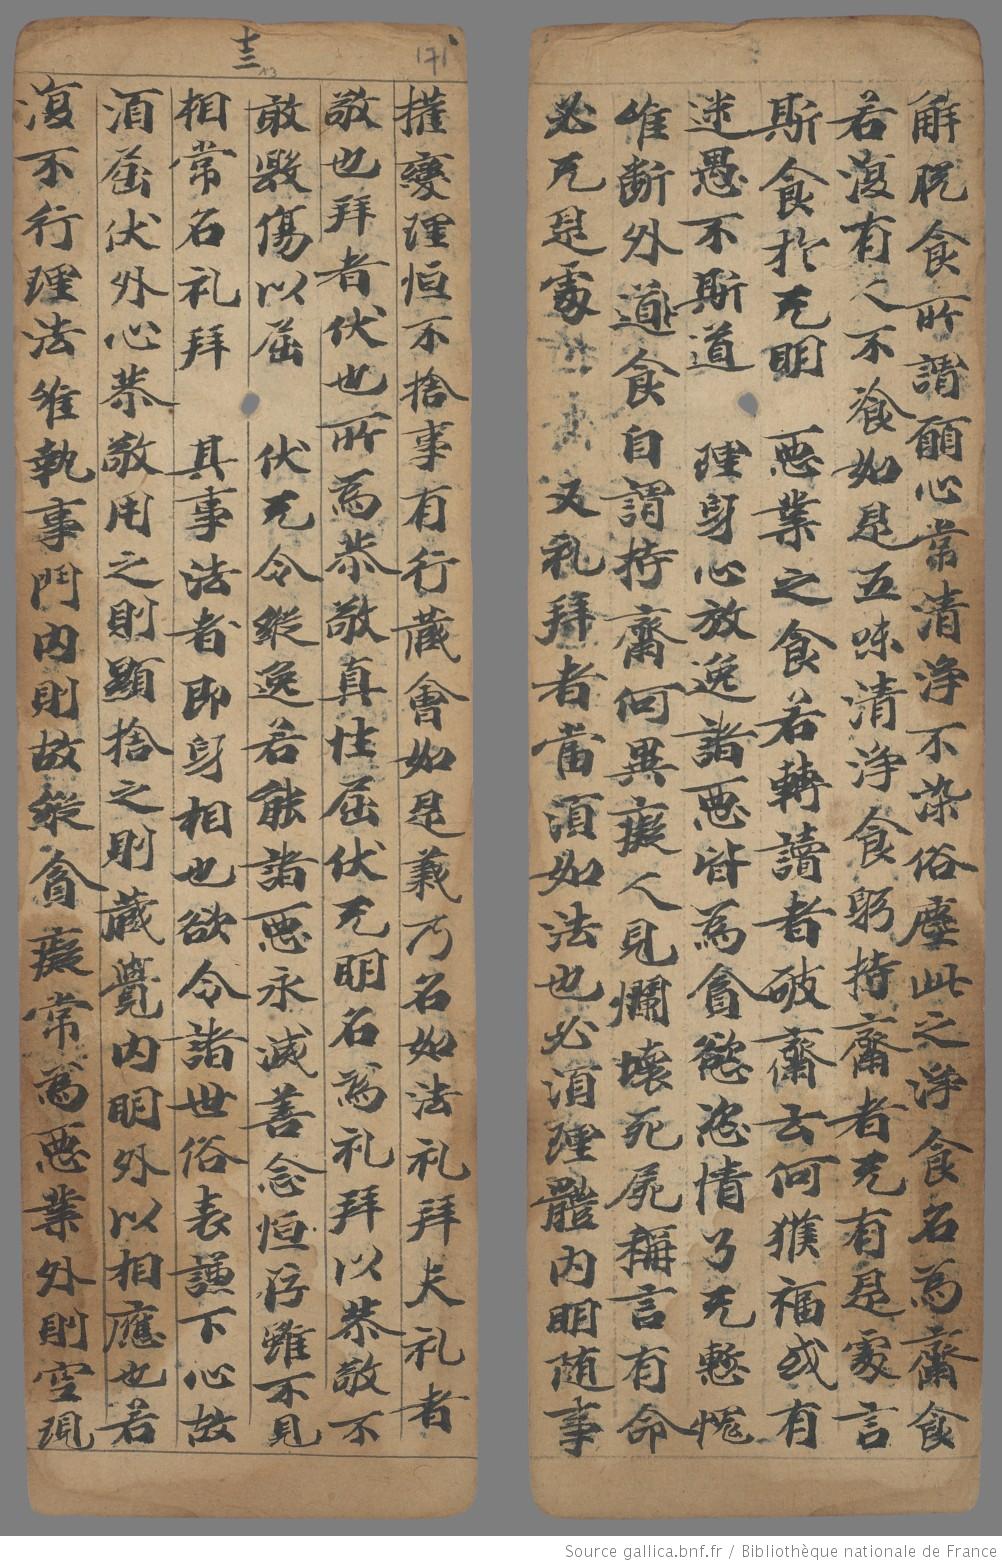 解脱食所謂願心常清浄不染俗塵此之浄食名為齋食
若復有人不飡如是五味清浄食躬持齋者无有是處言
斯食於无明惡業之食若轉讀者破齋云何獲福或有
迷愚不斯道理身心放逸諸惡皆為貪慾恣情了无慙愧
唯斷外道食自謂持齋何異癡人見爛壞死屍稱言有命
必无是處又礼拜者當須如法也必須理體内明随事
十三
13
171
權變理恒不捨事有行藏會如是義乃名如法礼拜夫礼者
敬也拜者伏也所為恭敬真性屈伏无明名為礼拜以恭敬不
敢毀傷以屈伏无令縱逸若能諸惡永滅善念恒存雖不見
相常名礼拜其事法者即身相也欲令諸世俗表謙下心故
須屈伏外心恭敬用之則顯捨之則藏覺内明外以相應也若
復不行理法唯執事門内則故縱貪癡常為惡業外則空現
Source gallica.bnf.fr / Bibliothèque nationale de France